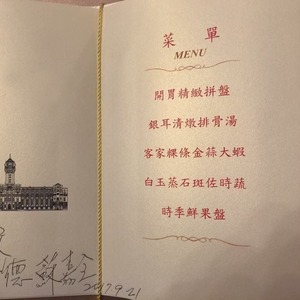 菜單
MENU
開胃精緻拼盤
銀耳清燉排骨湯
客家粿條金蒜大蝦
白玉蒸石斑佐時蔬
時季鮮果盤
德 蘇嘉全
2017.9.21